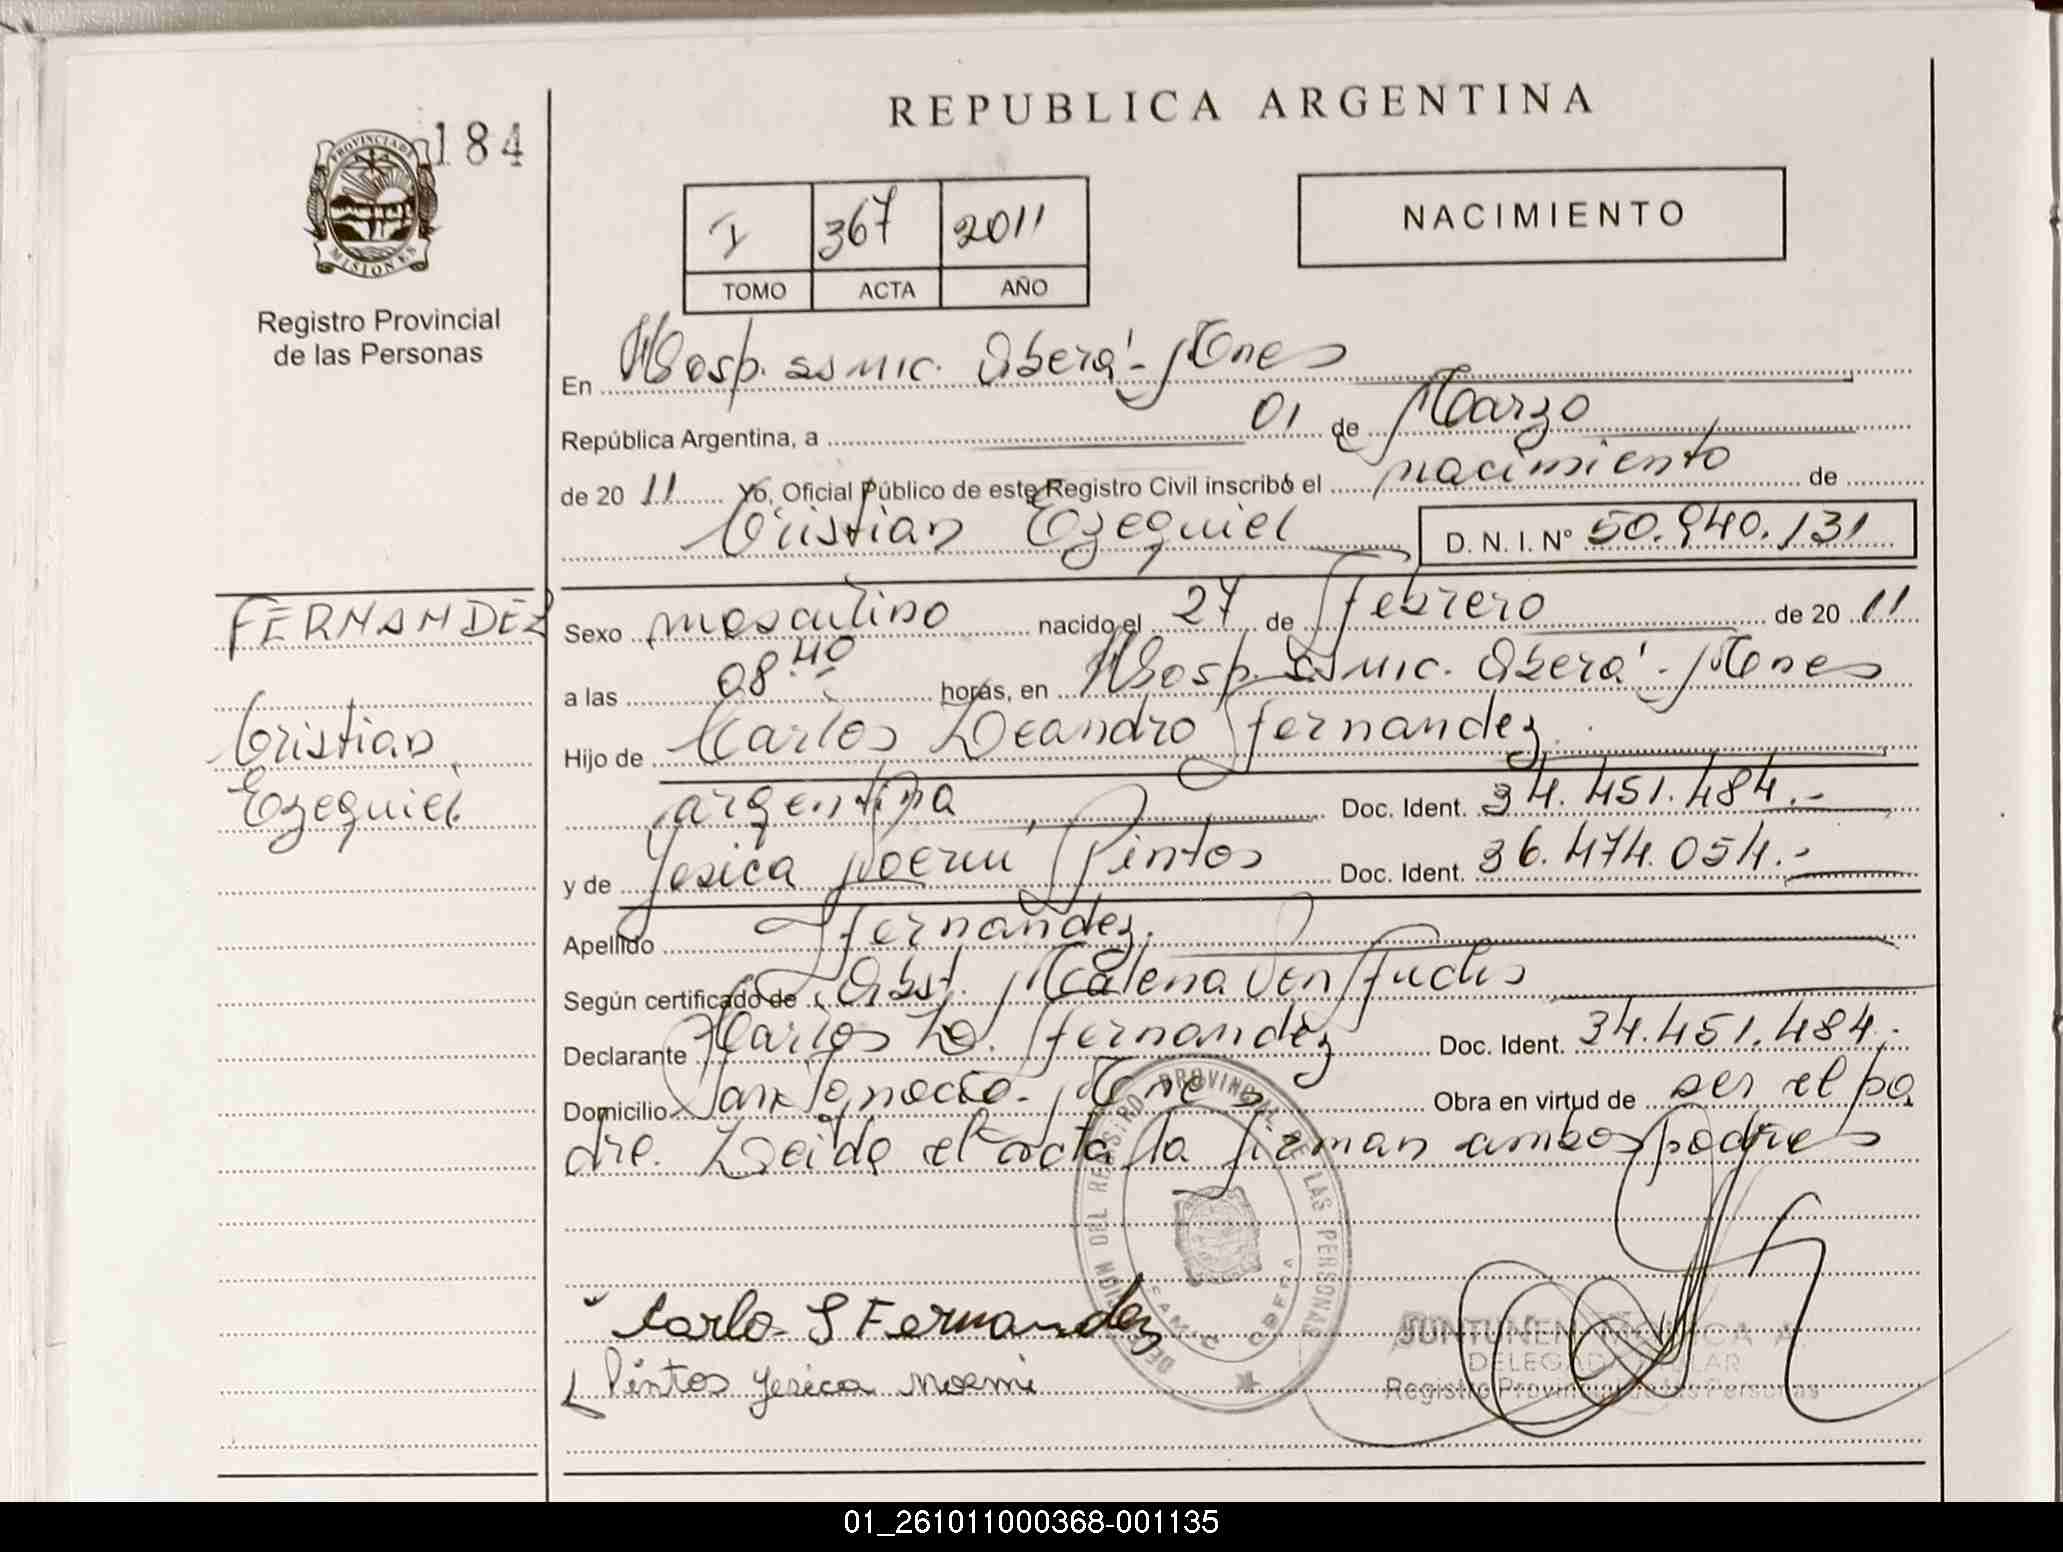 184
PROVINCIA DE
MISIONES
Registro Provincial
de las Personas
REPUBLICA ARGENTINA
I 367 2011
TOMO ACTA AÑO
NACIMIENTO
En Hosp. SS MIC. Oberá - Mnes
República Argentina, a 01 de Marzo
de 20 11 Yo, Oficial Público de este Registro Civil inscribo el nacimiento de
Cristian Ezequiel D. N. I. N° 50.940.131
FERNANDEZ
Cristian
Ezequiel
Sexo masculino nacido el 27 de febrero de 20 11
a las 08:40 horas, en Hosp. SS MIC. Oberá - Mnes
Hijo de Carlos Leandro Fernandez
argentina, Doc. Ident. 34.451.484.-
y de Yesica Noemi Pintos Doc. Ident. 36.474.054.-
Apellido Fernandez.
Según certificado de Obst. Malena
Declarante Carlos L. Fernandez Doc. Ident. 34.451.484.-
Domicilio San Ignacio - Mnes Obra en virtud de ser el pa
dre. Leida el acta la firman ambos padres
DEL REGISTRO PROVINCIAL DE LAS PERSONAS
Carlo S Fernandez
Pintos Yesica Noemi
JUNTUNEN MONICA A.
DELEGADA TITULAR
Registro Provincial de las Personas
01_261011000368-001135